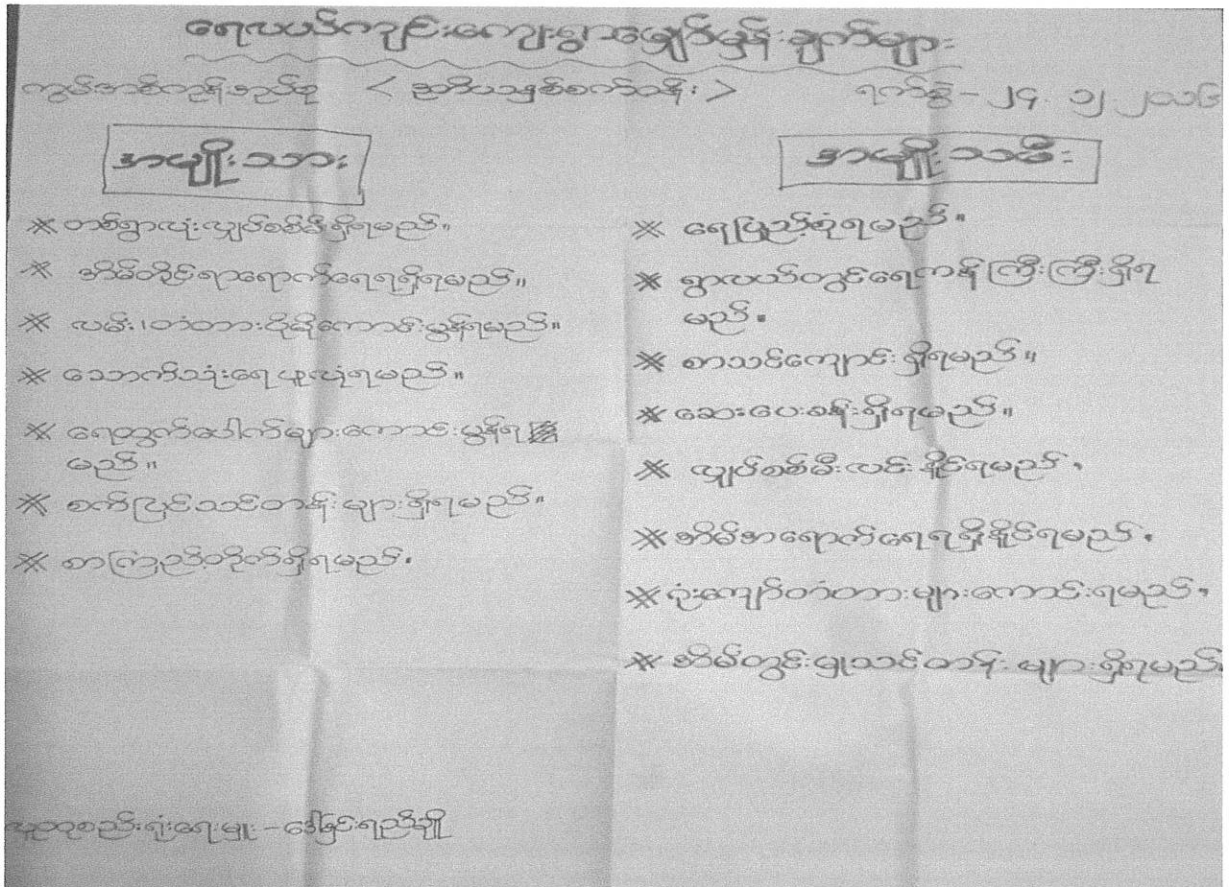 ရေလယ်ကျင်းကျေးရွာမျှော်မှန်းချက်များ
<ဒုတိယနှစ်စက်ဝန်း> ရက်စွဲ - ၂၄. ၁၂. ၂၀၁၆
အမျိုးသား
※ တစ်ရွာလုံးလျှပ်စစ်မီးရှိရမည်။
※ အိမ်တိုင်ရာရောက်ရေရရှိရမည်။
※ လမ်း၊တံတားပိုမိုကောင်းမွန်ရမည်။
※ သောက်သုံးရေဖူလုံရမည်။
※ ရေထွက်ပေါက်များကောင်းမွန်ရ
မည်။
※ စက်ပြင်သင်တန်းများရှိရမည်။
※ စာကြည့်တိုက်ရှိရမည်။
အမျိုးသမီး
※ ရေပြည့်စုံရမည်။
※ ရွာလယ်တွင်ရေကန်ကြီးကြီးရှိရ
မည်။
※ စာသင်ကျောင်းရှိရမည်။
※ ဆေးပေးခန်းရှိရမည်။
※ လျှပ်စစ်မီးလင်းနိုင်ရမည်။
※ အိမ်အရောက်ရေရရှိနိုင်ရမည်။
※ ရုံးကျော်တံတားများကောင်းရမည်။
※ အိမ်တွင်းမှုသင်တန်းများရှိရမည်
လူထုစည်းရုံးရေးမှူး - ဒေါ်ခြင်ရည်ချို